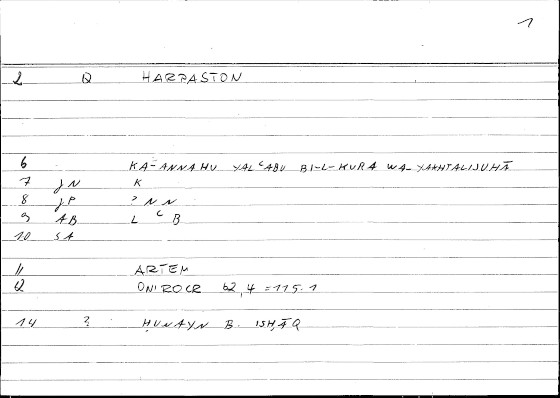 1
2 Q HARPASTON
6 KA-ANNAHU YALʿABU BI-L-KURA WA-YAKHTALISUHĀ
7 JN K
8 JP ʾNN
9 AB LʿB
10 SA
11 ARTEM
12 ONIROCR 62,4 = 115.1
14 ? ḤUNAYN B. ISḤĀQ